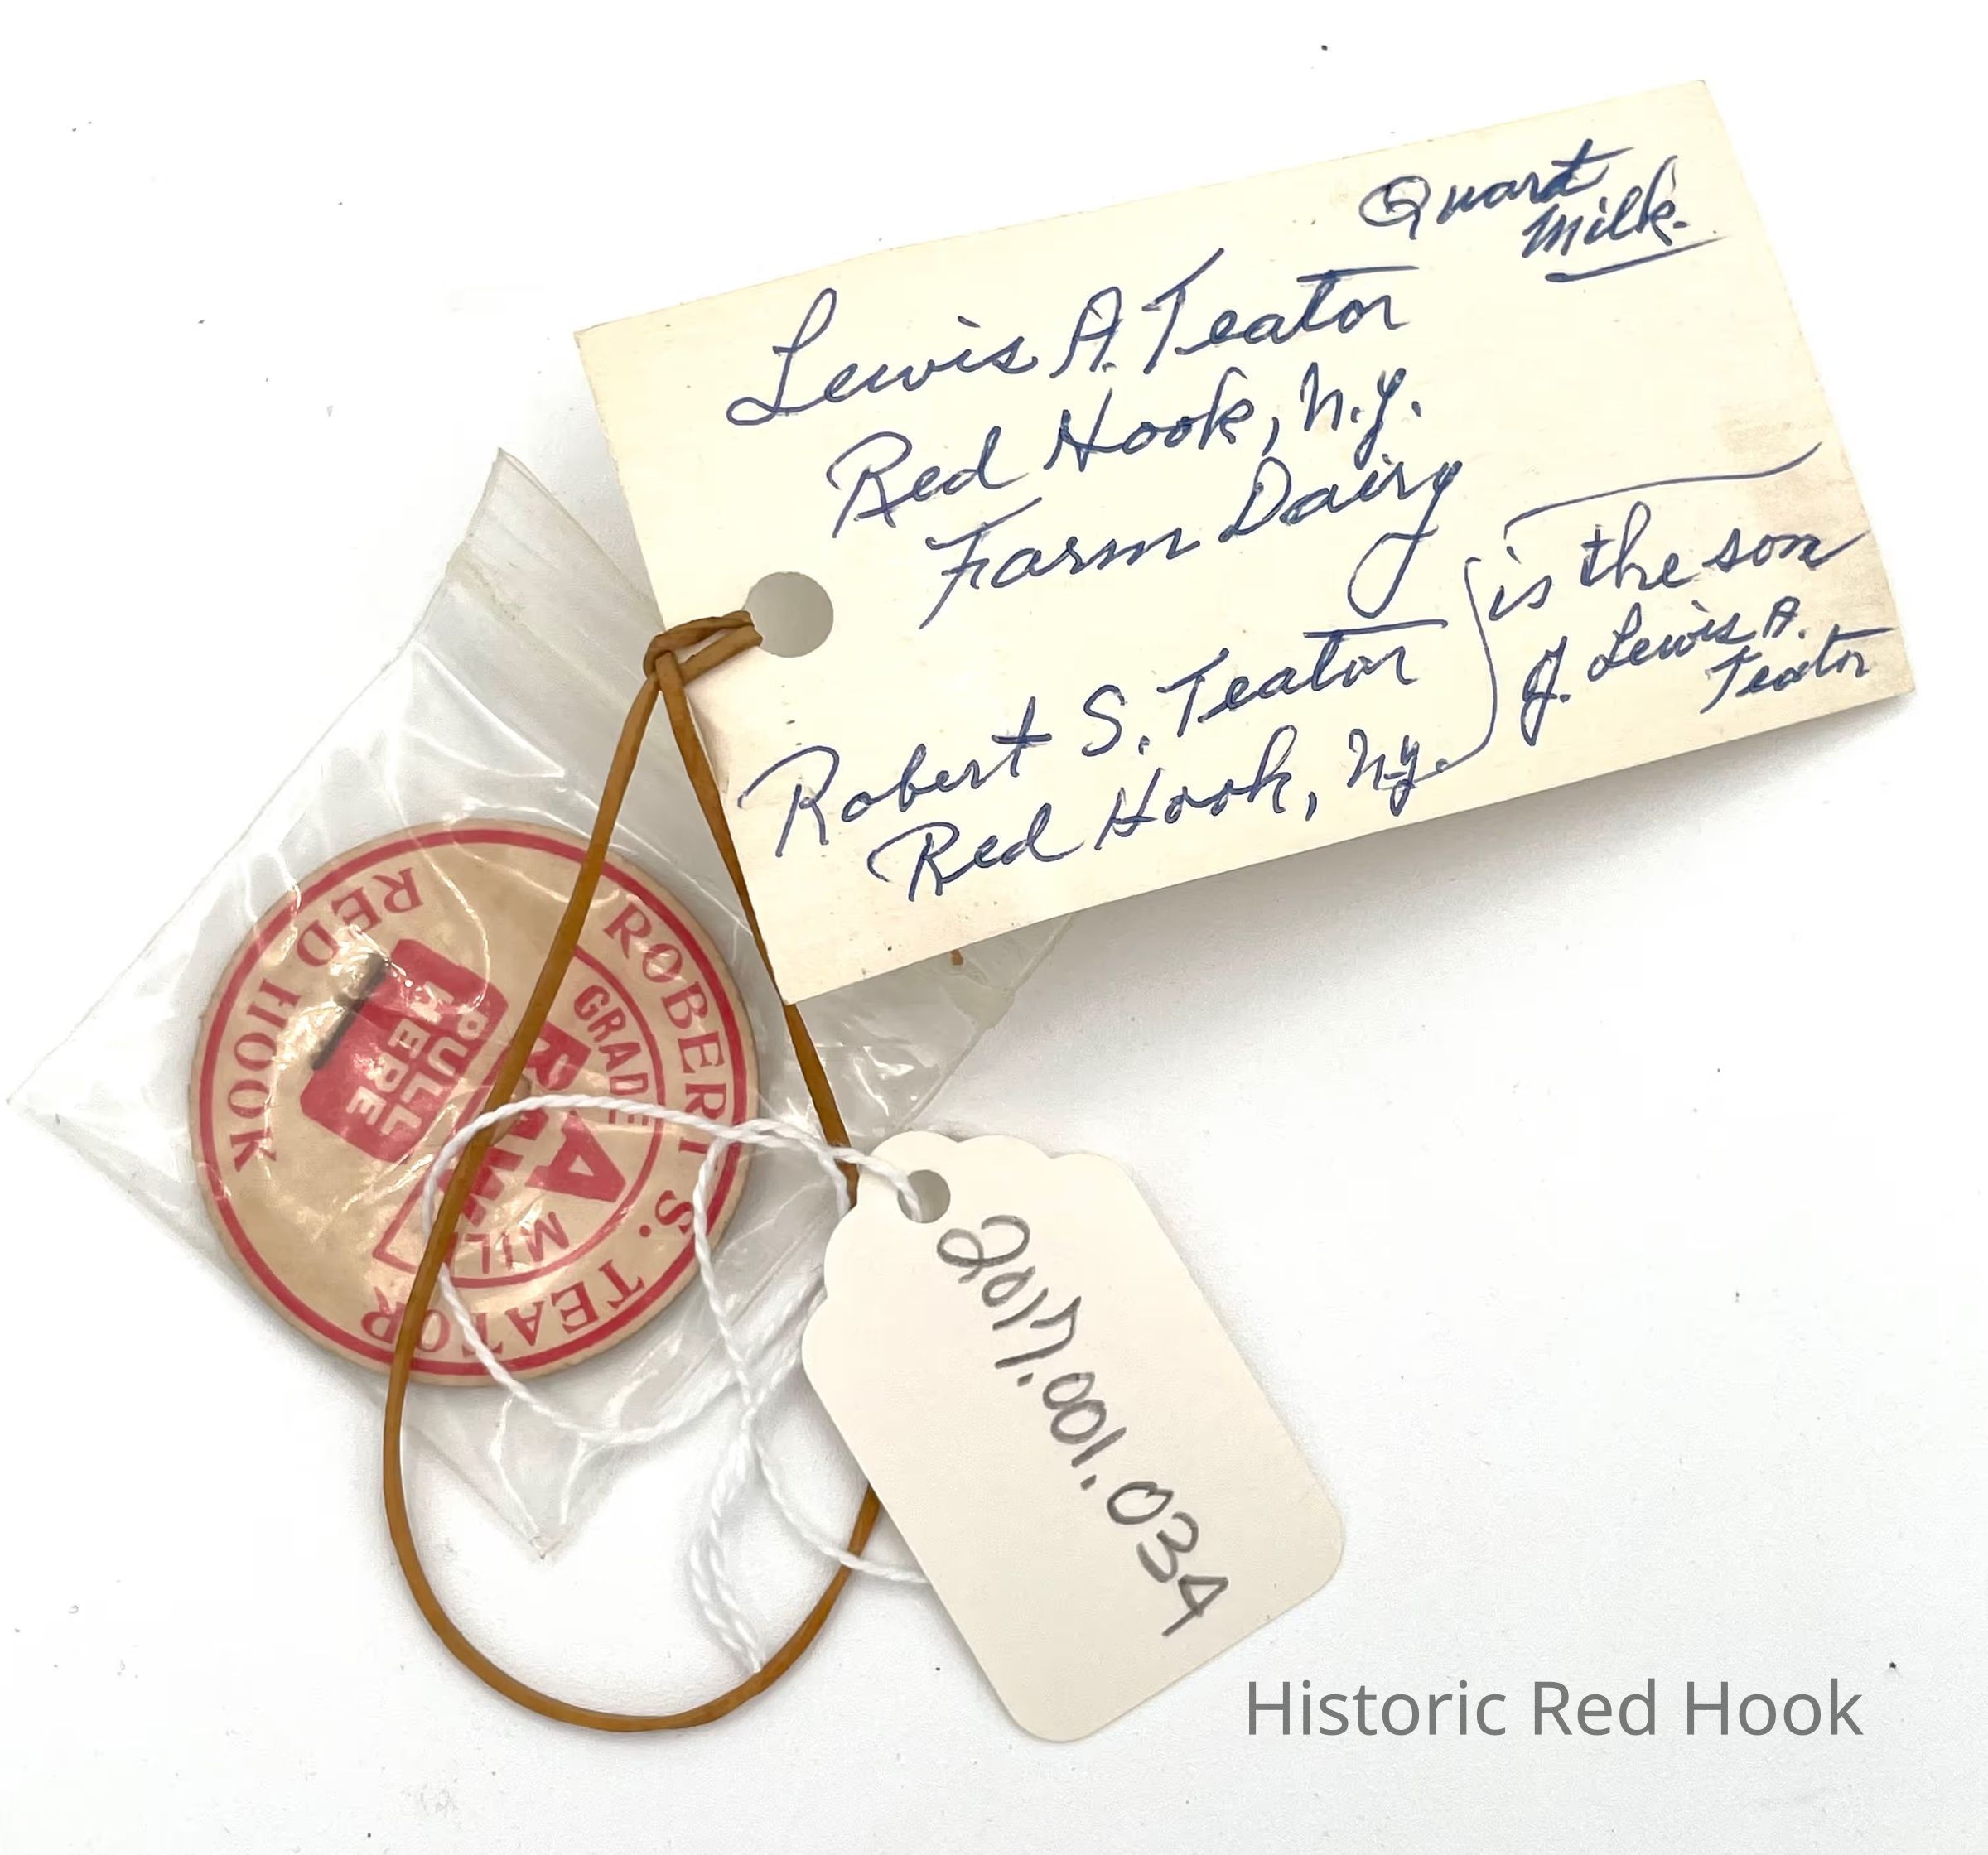 Quart
Milk.
Lewis A. Teator
Red Hook, N.Y.
Farm Dairy
Robert S. Teator
Red Hook, N.Y.
is the son
of Lewis A.
Teator
ROBERT S. TEATOR
RED HOOK
GRADE
A
MILK
PULL
HERE
2017.001.034
Historic Red Hook